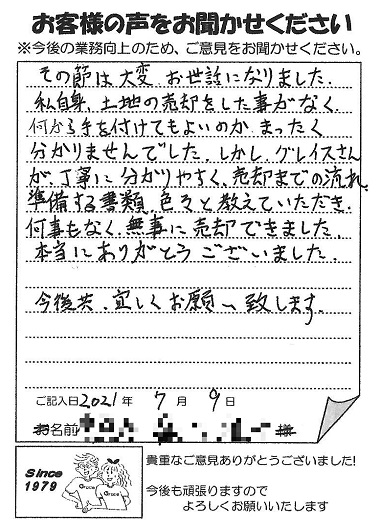 お客様の声をお聞かせください
※今後の業務向上のため、ご意見をお聞かせください。
その節は大変、お世話になりました。
私自身、土地の売却をした事がなく
何から手を付けてもよいのか、まったく
分かりませんでした。しかし、グレイスさん
が、丁寧に分かりやすく、売却までの流れ、
準備する書類、色々と教えていただき、
何事もなく、無事に売却できました。
本当にありがとうございました。
今後共、宜しくお願い致します。
ご記入日 2021 年 7 月 9 日
お名前 様
Since
1979
Grace
Grace
貴重なご意見ありがとうございました!
今後も頑張りますので
よろしくお願いいたします